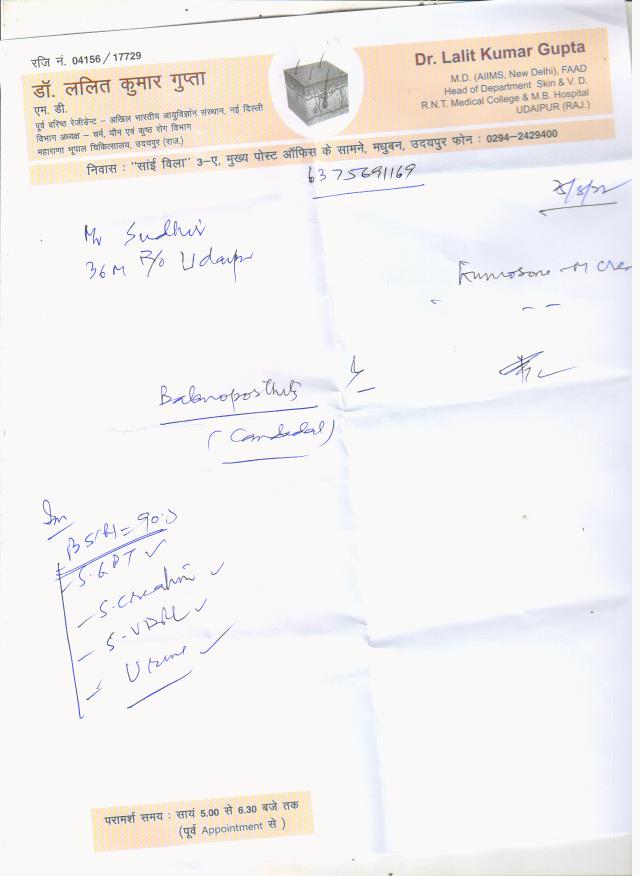 रजि नं. 04156 / 17729
डॉ. ललित कुमार गुप्ता
एम. डी.
पूर्व वरिष्ठ रेजीडेन्ट – अखिल भारतीय आयुर्विज्ञान संस्थान, नई दिल्ली
विभाग अध्यक्ष – चर्म, यौन एवं कुष्ठ रोग विभाग
महाराणा भूपाल चिकित्सालय, उदयपुर (राज.)
Dr. Lalit Kumar Gupta
M.D. (AIIMS, New Delhi), FAAD
Head of Department Skin & V. D.
R.N.T. Medical College & M.B. Hospital
UDAIPUR (RAJ.)
निवास : "सांई विला" 3-ए, मुख्य पोस्ट ऑफिस के सामने, मधुबन, उदयपुर फोन : 0294-2429400
6375691169
Mr Sudhir
36 M R/o Udaipur
Balanoposthitis
(Candidal)
S. GPT ✓
S. Creatinine ✓
S. VDRL ✓
Urine ✓
परामर्श समय : सायं 5.00 से 6.30 बजे तक
(पूर्व Appointment से )